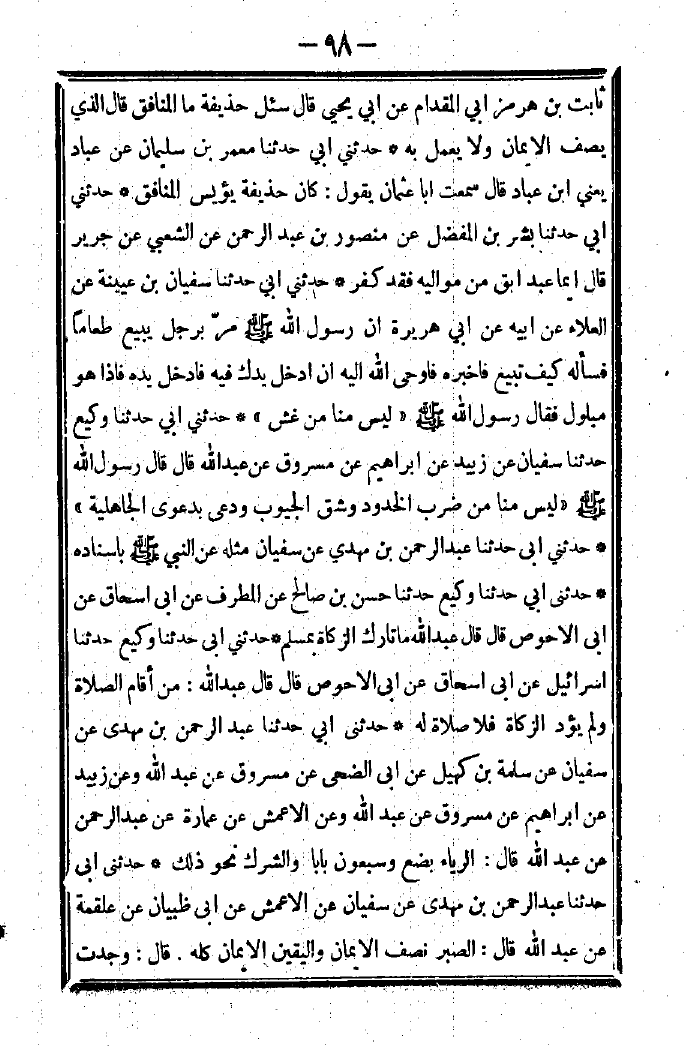 — ٩٨ —
ثابت بن هرمز ابي المقدام عن ابي يحيى قال سئل حذيفة ما المنافق قال الذي
يصف الايمان ولا يعمل به * حدثني ابي حدثنا معمر بن سليمان عن عباد
يعني ابن عباد قال سمعت ابا عثمان يقول : كان حذيفة يؤيس المنافق * حدثني
ابي حدثنا بشر بن المفضل عن منصور بن عبد الرحمن عن الشعبي عن جرير
قال ايما عبد ابق من مواليه فقد كفر * حدثني ابي حدثنا سفيان بن عيينة عن
العلاء عن ابيه عن ابي هريرة ان رسول الله ﷺ مرّ برجل يبيع طعاماً
فسأله كيف تبيع فاخبره فاوحى الله اليه ان ادخل يدك فيه فادخل يده فاذا هو
مبلول فقال رسول الله ﷺ « ليس منا من غش » * حدثني ابي حدثنا وكيع
حدثنا سفيان عن زبيد عن ابراهيم عن مسروق عن عبدالله قال قال رسول الله
ﷺ « ليس منا من ضرب الخدود وشق الجيوب ودعى بدعوى الجاهلية »
* حدثني ابى حدثنا عبدالرحمن بن مهدي عن سفيان مثله عن النبي ﷺ باسناده
* حدثنى ابي حدثنا وكيع حدثنا حسن بن صالح عن المطرف عن ابى اسحاق عن
ابى الاحوص قال قال عبدالله ما تارك الزكاة بمسلم * حدثني ابى حدثنا وكيع حدثنا
اسرائيل عن ابى اسحاق عن ابى الاحوص قال قال عبدالله : من أقام الصلاة
ولم يؤد الزكاة فلا صلاة له * حدثنى ابي حدثنا عبد الرحمن بن مهدى عن
سفيان عن سلمة بن كهيل عن ابى الضحى عن مسروق عن عبد الله وعن زبيد
عن ابراهيم عن مسروق عن عبد الله وعن الاعمش عن عمارة عن عبدالرحمن
عن عبد الله قال : الرياء بضع وسبعون بابا والشرك نحو ذلك * حدثنى ابى
حدثنا عبدالرحمن بن مهدى عن سفيان عن الاعمش عن ابى ظبيان عن علقمة
عن عبد الله قال : الصبر نصف الايمان واليقين الايمان كله . قال : وجدت